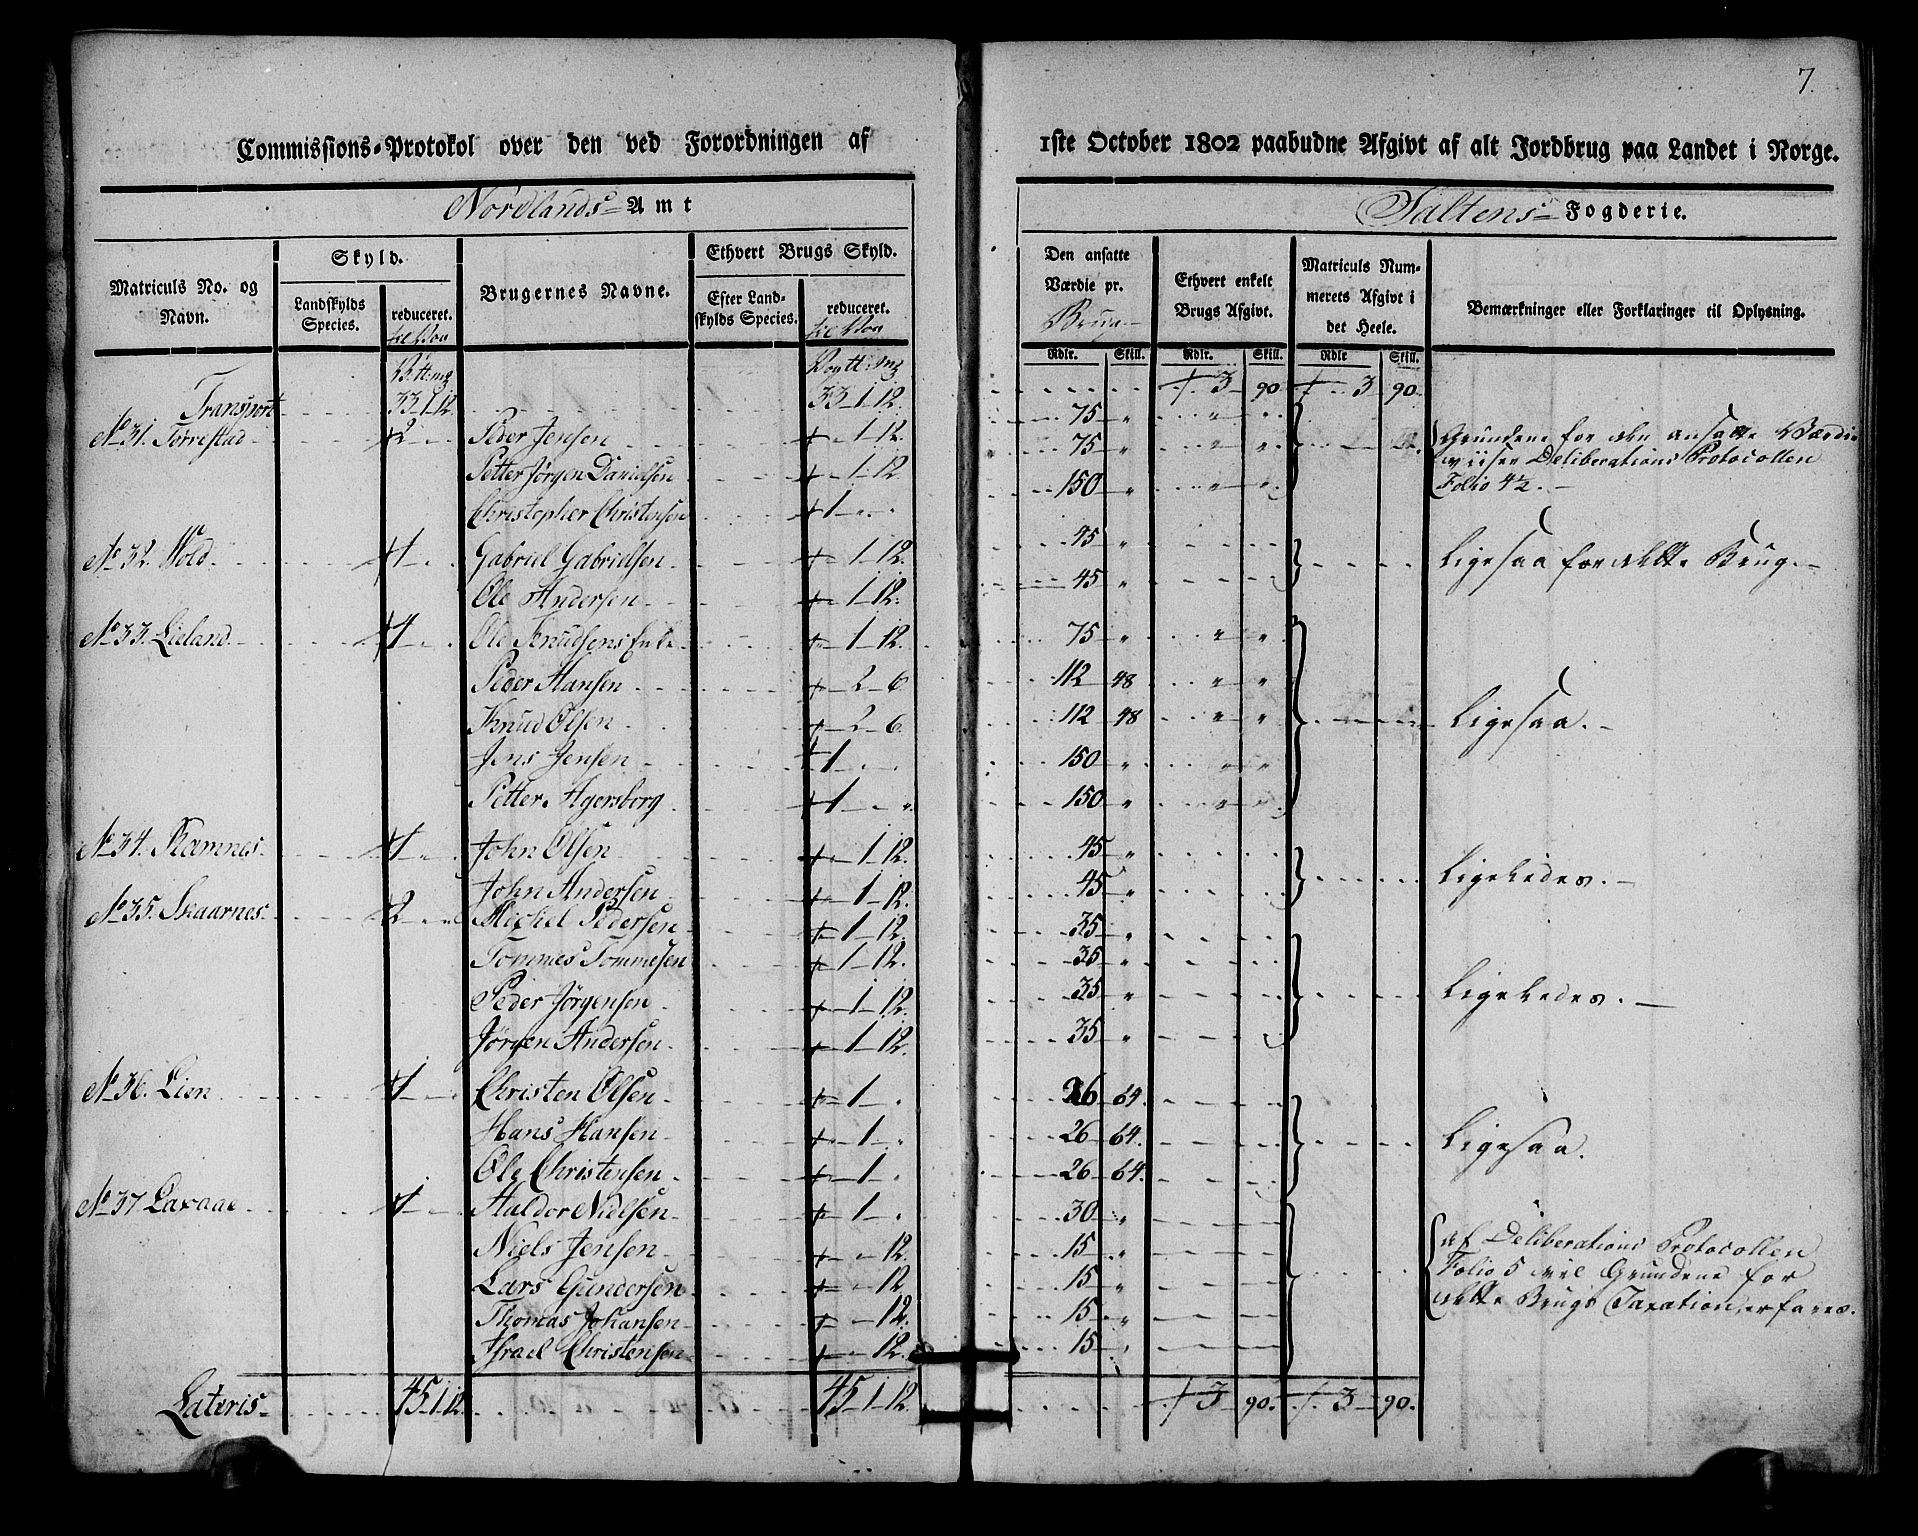 7.
Commissions-Protokol over den ved Forordningen af 1ste October 1802 paabudne Afgivt af alt Jordbrug paa Landet i Norge.
Nordlands Amt
Saltens Fogderie.
Matriculs No. og Navn.
Skyld.
Landskylds Species.
reduceret.
Brugernes Navne.
Ethvert Brugs Skyld.
Efter Landskylds Species.
reduceret.
Den ansatte Værdie pr. Brug
Ethvert enkelt Brugs Afgivt.
Matriculs Nummerets Afgivt i det Heele.
Bemærkninger eller Forklaringer til Oplysning.
Rdlr. Skill. Rdlr. Skill. Rdlr Skill.
Transport 33-1-12 33-1-12. 3 90 3 90.
No 31. Torrestad 2 Peder Jensen 1-12. 75 "
Petter Jörgen Danielsen 1-12 75 "
Christopher Christensen 1 150 "
Grundene for den ansatte Værdie
viiser Deliberations Protocollen
Folio 4½.
No 32. Vold 1 Gabriel Gabrielsen 1-12. 45 "
Ole Andersen 1-12. 45 "
Ligesaa for dette Brug.
No 33. Lieland 4 Ole Knudsens Enke 1-12. 75 "
Peder Hansen 2-6 112 48
Knud Olsen 2-6. 112 48
Jens Jensen 1 150 "
Petter Agersborg 1 150 "
Ligesaa.
No 34. Kamnes 1 John Olsen 1-12. 45 "
John Andersen 1-12. 45 "
Ligeledes.
No 35. Skaarnes. 2 Michel Pedersen 1-12. 35 "
Tommes Tommesen 1-12. 35 "
Peder Jörgensen 1-12. 35 "
Jörgen Andersen 1-12. 35 "
Ligeledes.
No 36. Lien 1 Christen Olsen 1 26 64.
Hans Hansen 1 26 64.
Ole Christensen 1 26 64.
Ligesaa.
No 37 Laxaae 1 Haldor Nielsen 1 30 "
Niels Jensen 12. 15 "
Lars Gundersen 12. 15 "
Thomas Johansen 12. 15 "
Israel Christensen 12. 15 "
af Deliberations Protocollen
Folio 5 vil Grundene for
dette Brugs Taxation, erfares.
Lateris 45-1-12. 45-1-12. 3 90. 3 90.